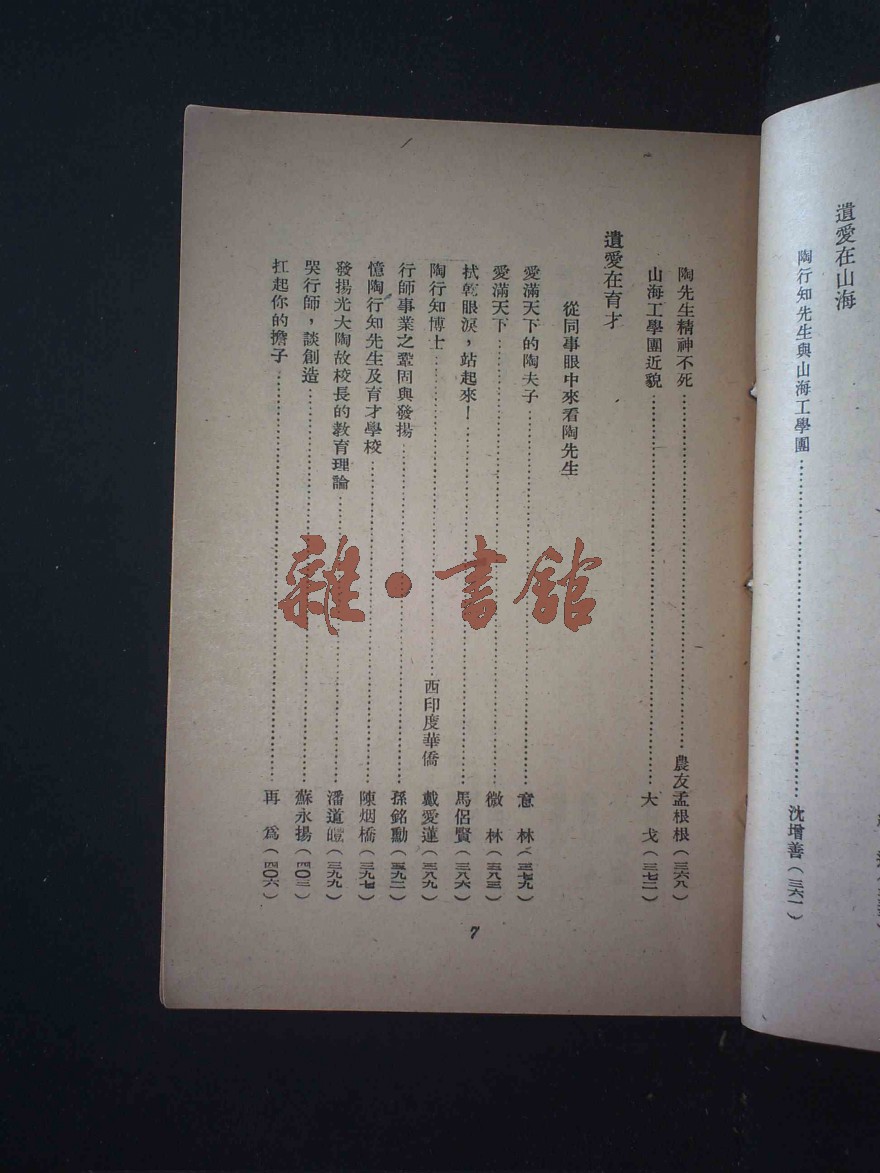 遺愛在山海
陶行知先生與山海工學團……沈增善(三六一)
陶先生精神不死……農友孟根根(三六八)
山海工學團近貌……大戈(三七二)
遺愛在育才
從同事眼中來看陶先生
愛滿天下的陶夫子……意林(三七九)
愛滿天下……微林(三八三)
拭乾眼淚,站起來!……馬侶賢(三八六)
陶行知博士……西印度華僑 戴愛蓮(三八九)
行師事業之鞏固與發揚……孫銘勳(三九二)
憶陶行知先生及育才學校……陳烟橋(三九七)
發揚光大陶故校長的教育理論……潘道皚(三九九)
哭行師,談創造……蘇永揚(四〇三)
扛起你的擔子……再為(四〇六)
7
雜·書館